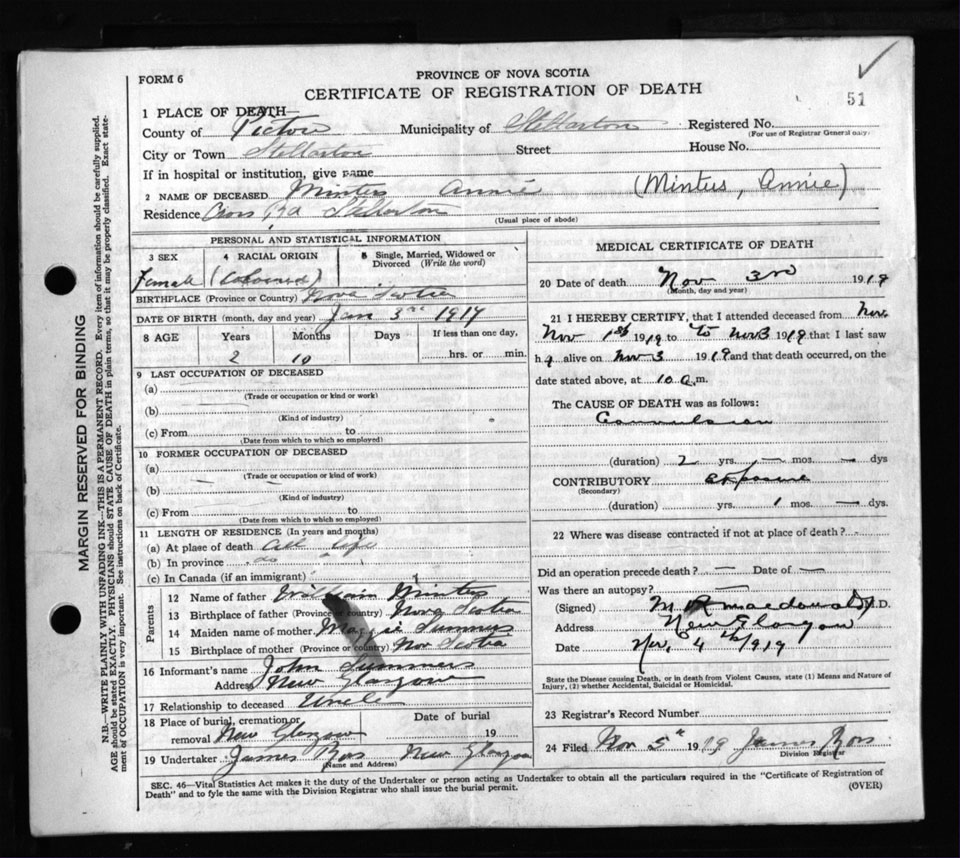 FORM 6
PROVINCE OF NOVA SCOTIA
CERTIFICATE OF REGISTRATION OF DEATH
51
1 PLACE OF DEATH
County of Pictou Municipality of Stellarton Registered No.
(For use of Registrar General only)
City or Town Stellarton Street House No.
If in hospital or institution, give name
2 NAME OF DECEASED Mintus Annie (Mintus, Annie)
Residence Cross Rd Stellarton
(Usual place of abode)
PERSONAL AND STATISTICAL INFORMATION
3 SEX 4 RACIAL ORIGIN 5 Single, Married, Widowed or Divorced (Write the word)
Female (Coloured)
BIRTHPLACE (Province or Country) Nova Scotia
DATE OF BIRTH (month, day and year) Jan 3rd 1917
8 AGE Years Months Days If less than one day,
2 10 hrs. or min.
9 LAST OCCUPATION OF DECEASED
(a)
(Trade or occupation or kind or work)
(b)
(Kind of industry)
(c) From to
(Date from which to which so employed)
10 FORMER OCCUPATION OF DECEASED
(a)
(Trade or occupation or kind of work)
(b)
(Kind of industry)
(c) From to
(Date from which to which so employed)
11 LENGTH OF RESIDENCE (In years and months)
(a) At place of death All life
(b) In province do
(c) In Canada (if an immigrant)
Parents
12 Name of father William Mintus
13 Birthplace of father (Province or country) Nova Scotia
14 Maiden name of mother Maggie Summers
15 Birthplace of mother (Province or country) Nov Scotia
16 Informant's name John Summers
Address New Glasgow
17 Relationship to deceased Uncle
18 Place of burial, cremation or removal New Glasgow
Date of burial
19
19 Undertaker James Ross New Glasgow
(Name and Address)
MEDICAL CERTIFICATE OF DEATH
20 Date of death Nov 3rd 1919
(Month, day and year)
21 I HEREBY CERTIFY, that I attended deceased from Nov
Nov 1st 1919 to to Nov 3 1919 that I last saw
h alive on Nov 3 1919 and that death occurred, on the
date stated above, at 10 a.m.
The CAUSE OF DEATH was as follows:
Convulsion
(duration) 2 yrs. — mos. — dys
CONTRIBUTORY exposure
(Secondary)
(duration) yrs. 1 mos. — dys.
22 Where was disease contracted if not at place of death?
Did an operation precede death? — Date of —
Was there an autopsy? —
(Signed) M R Macdonald M.D.
Address New Glasgow
Date Nov 4th 1919
State the Disease causing Death, or in death from Violent Causes, state (1) Means and Nature of
Injury, (2) whether Accidental, Suicidal or Homicidal.
23 Registrar's Record Number
24 Filed Nov 5th 1919 James Ross
Division Registrar
SEC. 46—Vital Statistics Act makes it the duty of the Undertaker or person acting as Undertaker to obtain all the particulars required in the "Certificate of Registration of
Death" and to fyle the same with the Division Registrar who shall issue the burial permit.
(OVER)
MARGIN RESERVED FOR BINDING
N.B.—WRITE PLAINLY WITH UNFADING INK—THIS IS A PERMANENT RECORD. Every item of information should be carefully supplied.
AGE should be stated EXACTLY. PHYSICIANS should STATE CAUSE OF DEATH in plain terms, so that it may be properly classified. Exact state-
ment of OCCUPATION is very important. See instructions on back of Certificate.